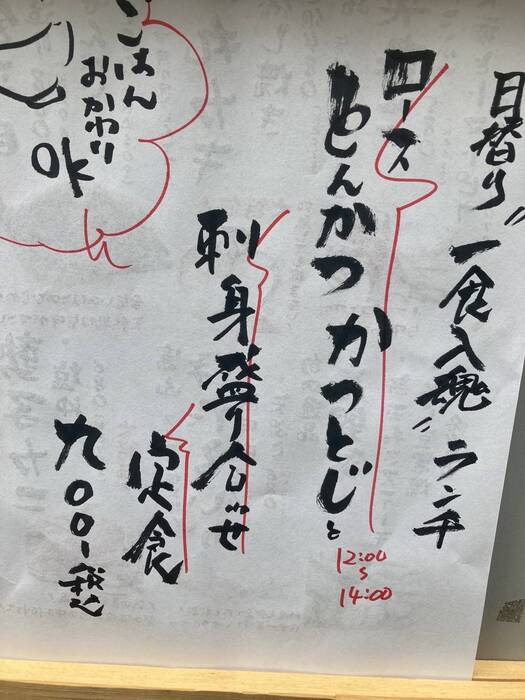 日替り〃一食入魂〃ランチ
ロース
とんかつ かつとじと
12:00
〜
14:00
刺身盛り合せ
定食
九〇〇-税込
ごはん
おかわり
OK